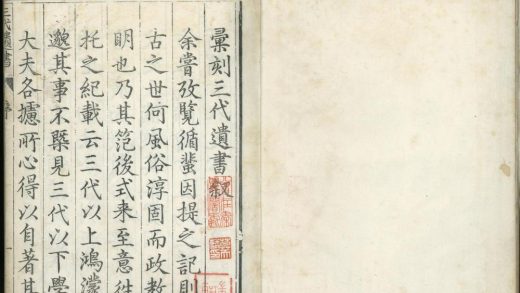 彙刻三代遺書敘
余嘗攷覽循蜚因提之記則
古之世何風俗淳固而政教
明也乃其範後式來至意往
托之紀載云三代以上鴻濛
邈其事不槩見三代以下學
大夫各攄所心得以自著其
三代遺書 序 一